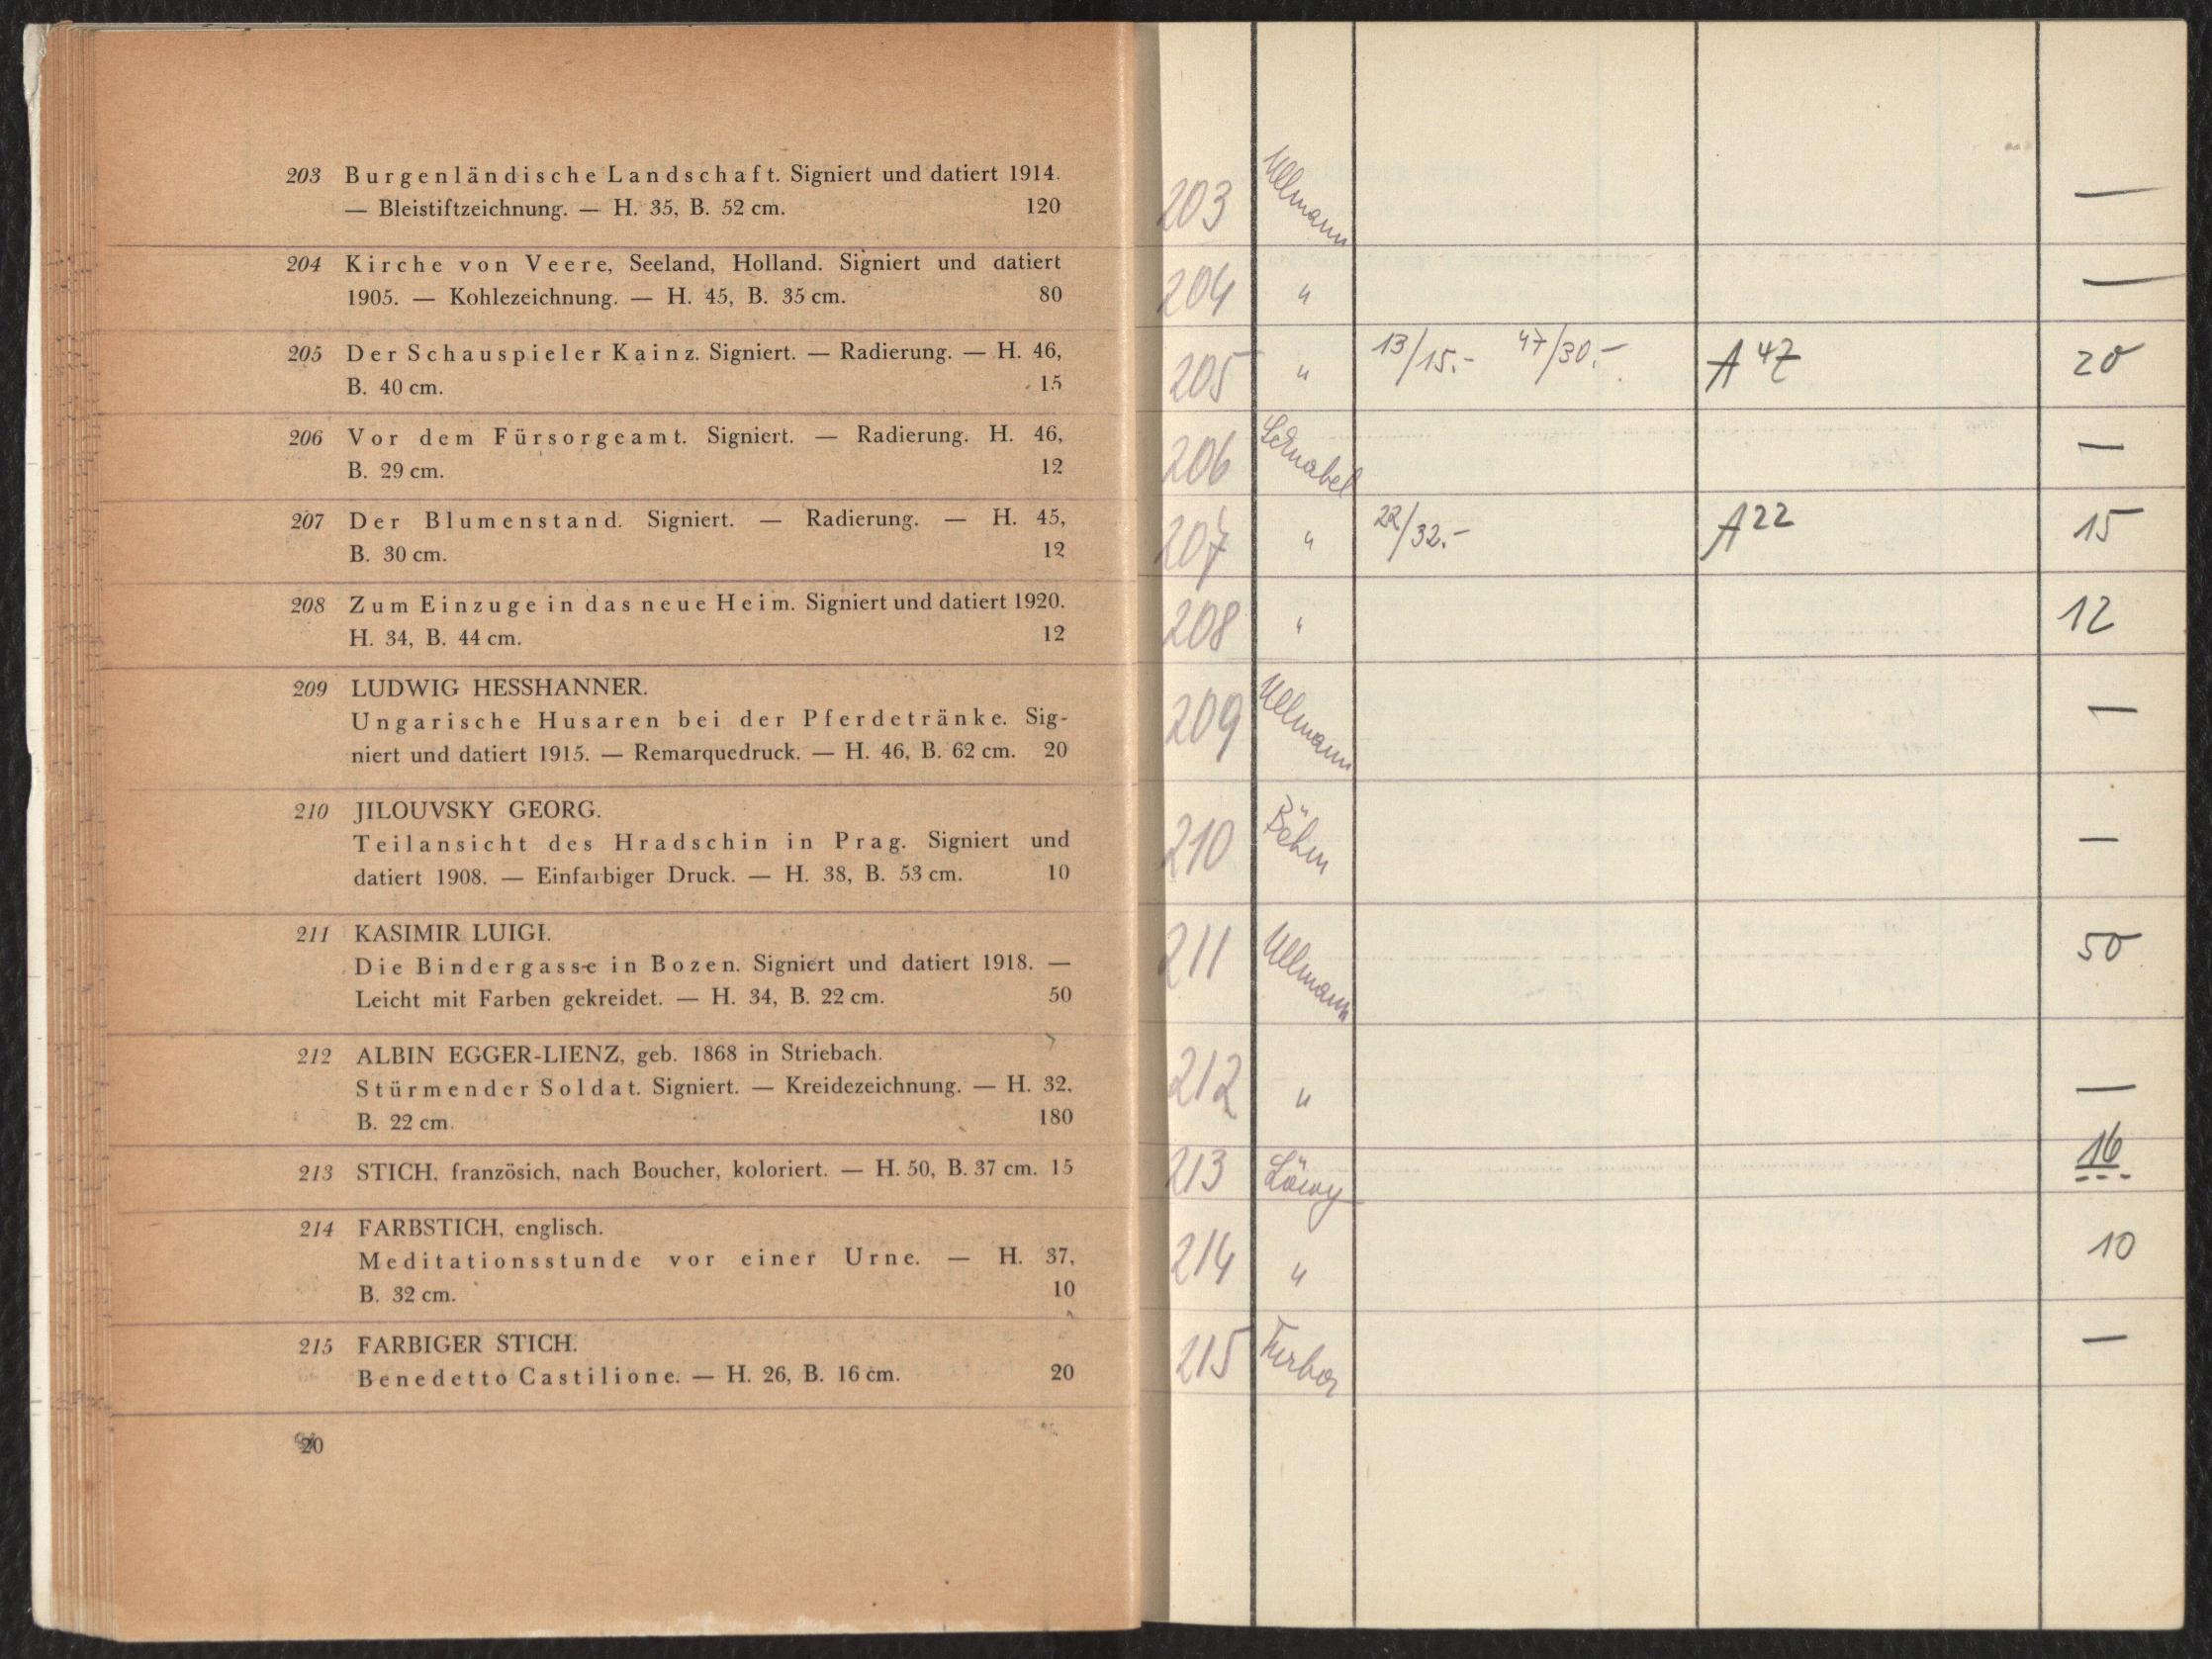 203 Burgenländische Landschaft. Signiert und datiert 1914.
— Bleistiftzeichnung. — H. 35, B. 52 cm. 120
204 Kirche von Veere, Seeland, Holland. Signiert und datiert
1905. — Kohlezeichnung. — H. 45, B. 35 cm. 80
205 Der Schauspieler Kainz. Signiert. — Radierung. — H. 46,
B. 40 cm. 15
206 Vor dem Fürsorgeamt. Signiert. — Radierung. H. 46,
B. 29 cm. 12
207 Der Blumenstand. Signiert. — Radierung. — H. 45,
B. 30 cm. 12
208 Zum Einzuge in das neue Heim. Signiert und datiert 1920.
H. 34, B. 44 cm. 12
209 LUDWIG HESSHANNER.
Ungarische Husaren bei der Pferdetränke. Sig-
niert und datiert 1915. — Remarquedruck. — H. 46, B. 62 cm. 20
210 JILOUVSKY GEORG.
Teilansicht des Hradschin in Prag. Signiert und
datiert 1908. — Einfarbiger Druck. — H. 38, B. 53 cm. 10
211 KASIMIR LUIGI.
Die Bindergasse in Bozen. Signiert und datiert 1918. —
Leicht mit Farben gekreidet. — H. 34, B. 22 cm. 50
212 ALBIN EGGER-LIENZ, geb. 1868 in Striebach.
Stürmender Soldat. Signiert. — Kreidezeichnung. — H. 32,
B. 22 cm. 180
213 STICH, französich, nach Boucher, koloriert. — H. 50, B. 37 cm. 15
214 FARBSTICH, englisch.
Meditationsstunde vor einer Urne. — H. 37,
B. 32 cm. 10
215 FARBIGER STICH.
Benedetto Castilione. — H. 26, B. 16 cm. 20
20
203 Ullmann —
204 " —
205 " 13/15.- 47/30.- A 47 20
206 Schnabel —
207 " 22/32.- A 22 15
208 " 12
209 Ullmann —
210 Böhm —
211 Ullmann 50
212 " —
213 Löwy 16
214 " 10
215 —